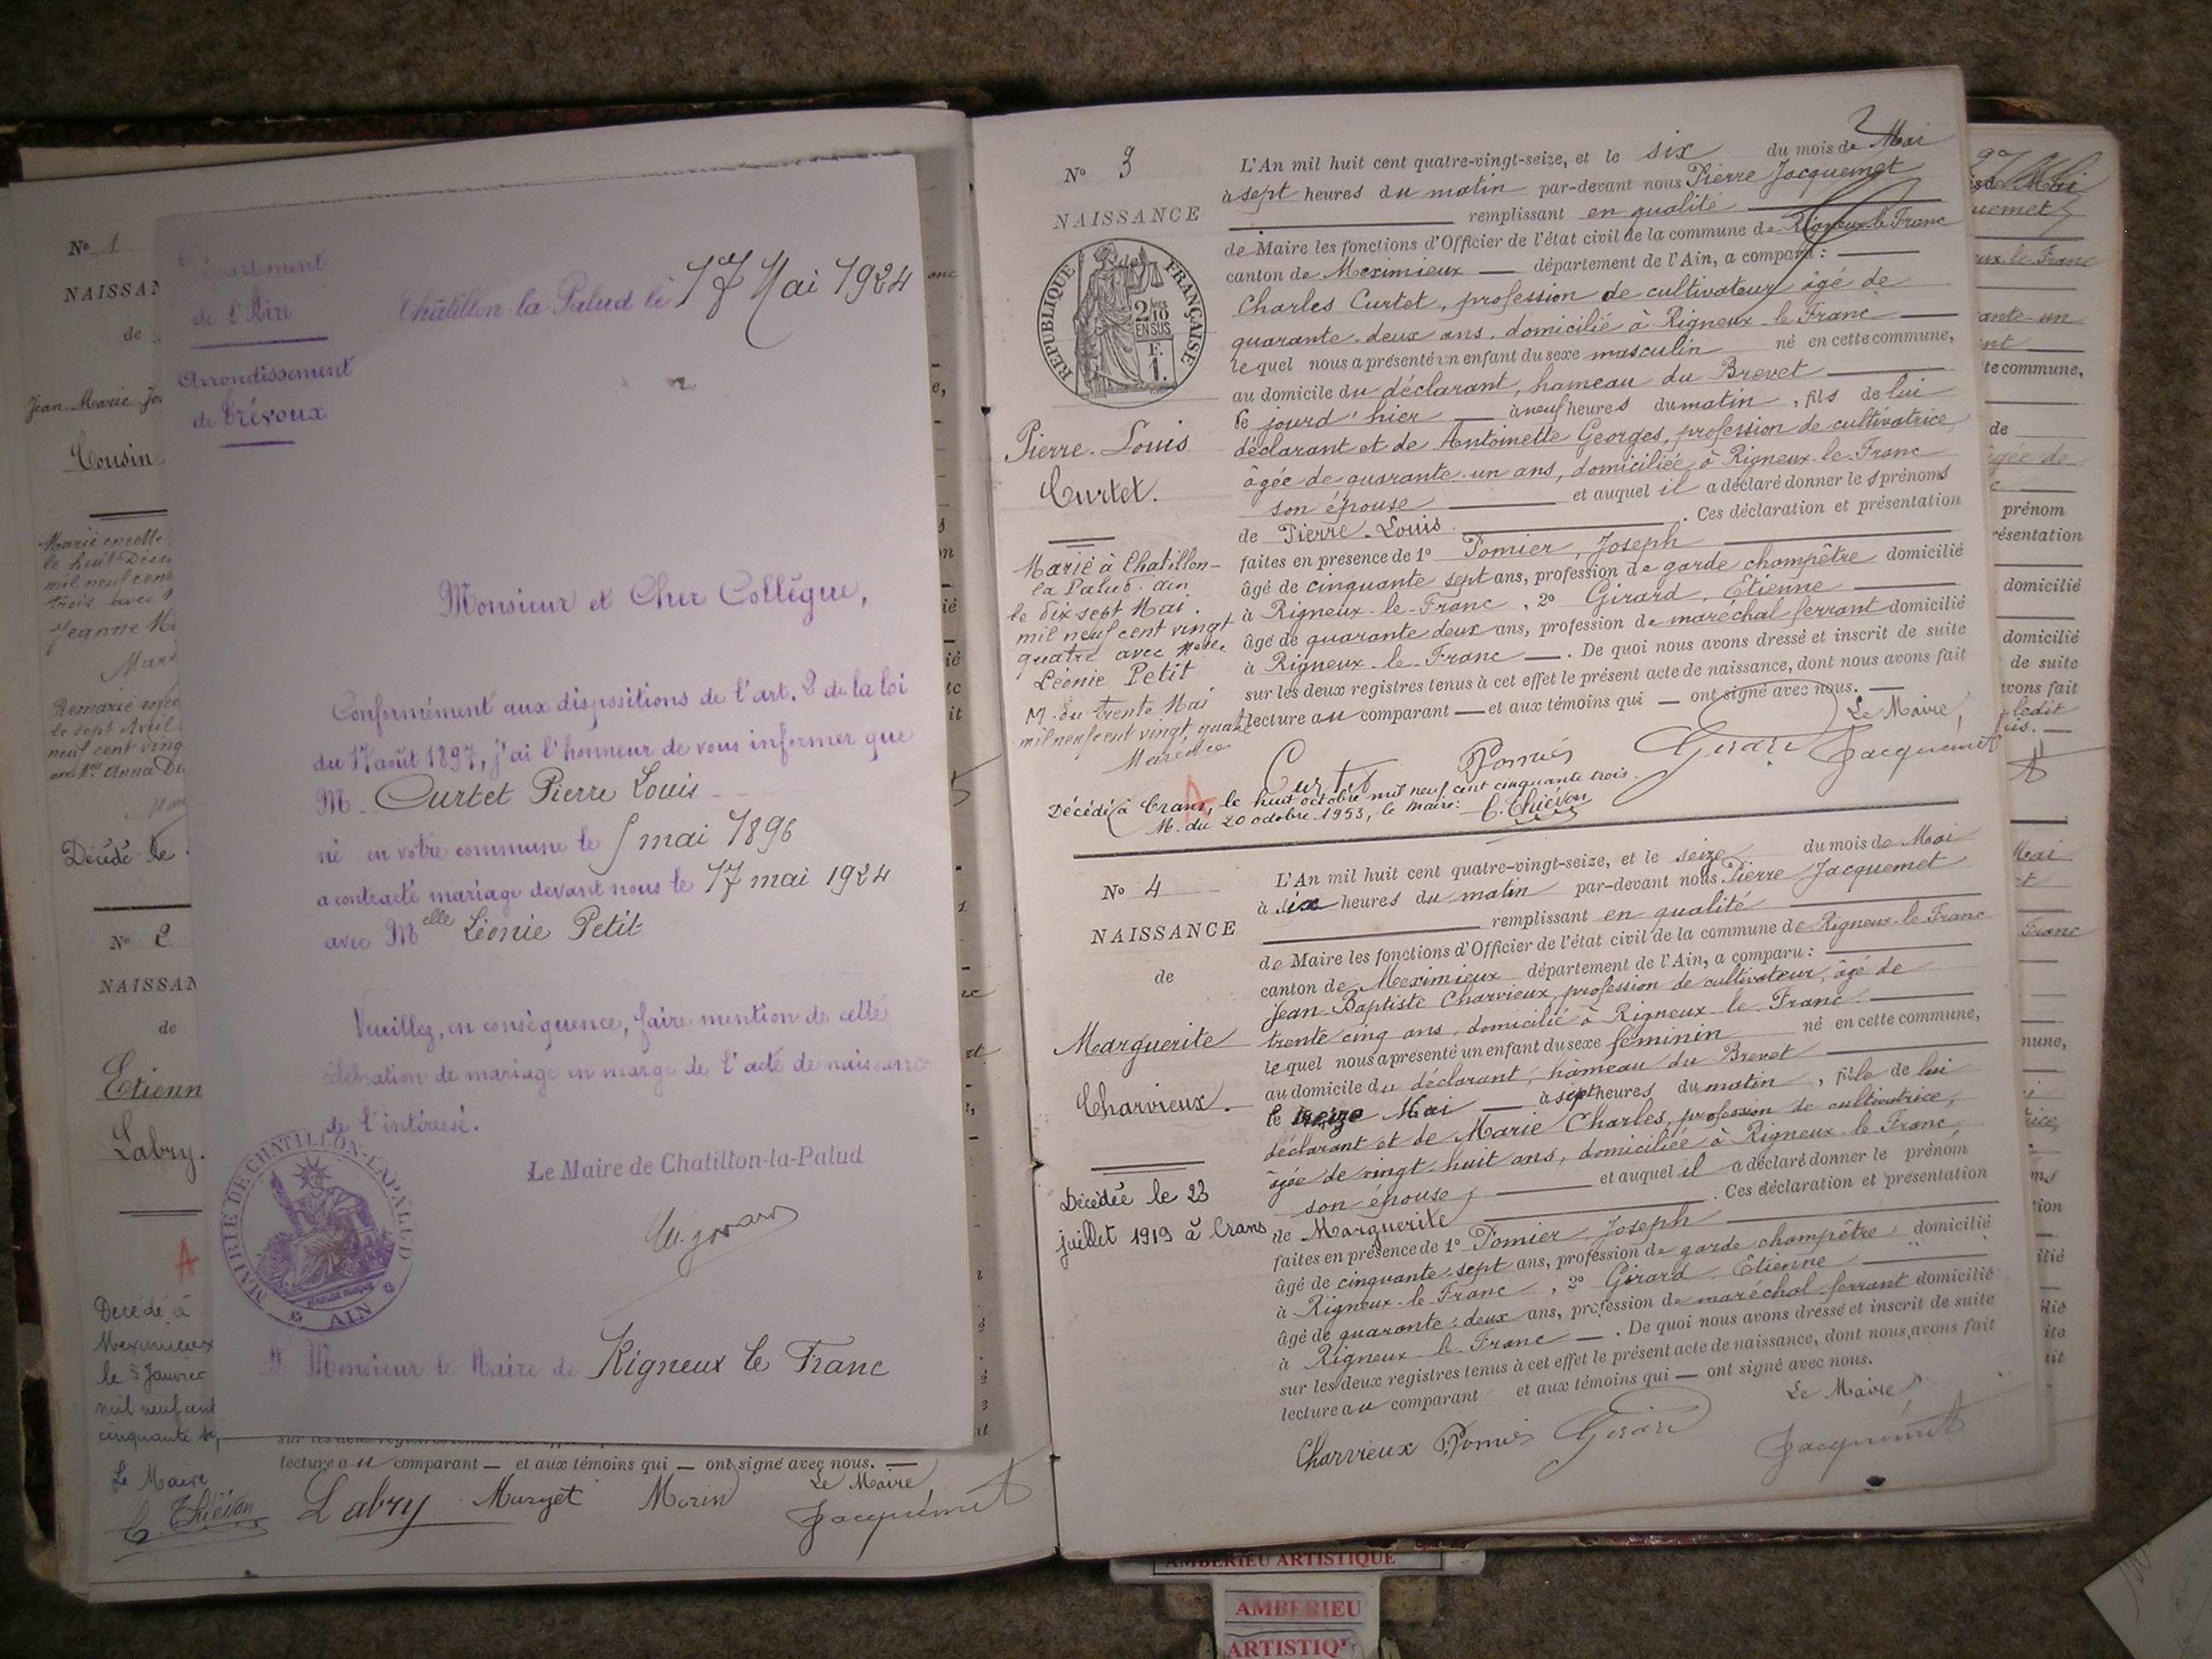 Nº 1
NAISSAN
de
Jean Marie Jo
Cousin
Marié en cette
le huit Déce
mil neuf cent
trois avec
Jeanne Ma
Remarié
le sept Avril
neuf cent ving
avec Mlle Anna Du
Décédé le
Nº 2
NAISSAN
de
Etienn
Labry.
A
Décédé à
Meximieux
le 5 Janvier
mil neuf cent
cinquante
Le Maire
C. Thiévon
sur les deux registres tenus à cet effet
lecture au comparant — et aux témoins qui — ont signé avec nous. —
Le Maire
Labry Murget Morin Jacquemet
Département
de l'Ain
Arrondissement
de Trévoux
Châtillon-la-Palud le 17 Mai 1924
Monsieur et Cher Collègue,
Conformément aux dispositions de l'art. 2 de la loi
du 17 août 1897, j'ai l'honneur de vous informer que
M. Curtet Pierre Louis
né en votre commune le 5 mai 1896
a contracté mariage devant nous le 17 mai 1924
avec Melle Léonie Petit
Veuillez, en conséquence, faire mention de cette
célébration de mariage en marge de l'acte de naissance
de l'intéressé.
Le Maire de Chatillon-la-Palud
MAIRIE DE CHATILLON-LA PALUD
AIN
A Monsieur le Maire de Rigneux le Franc
Nº 3
NAISSANCE
de
RÉPUBLIQUE FRANÇAISE
2/10 EN SUS
F. 1.
Pierre-Louis
Curtet.
Marié à Chatillon-
la Palud. Ain
le dix sept Mai
mil neuf cent vingt
quatre avec Melle
Léonie Petit
M. du trente Mai
mil neuf cent vingt quatre
L'An mil huit cent quatre-vingt-seize, et le six du mois de Mai
à sept heures du matin par-devant nous Pierre Jacquemet
remplissant en qualité
de Maire les fonctions d'Officier de l'état civil de la commune de Rigneux-le-Franc
canton de Meximieux — département de l'Ain, a comparu : —
Charles Curtet, profession de cultivateur, âgé de
quarante-deux ans, domicilié à Rigneux-le-Franc —
lequel nous a présenté un enfant du sexe masculin né en cette commune,
au domicile du déclarant, hameau du Brevet
le jourd'hier — à neuf heures du matin, fils de lui
déclarant et de Antoinette Georges, profession de cultivatrice,
âgée de quarante-un ans, domiciliée à Rigneux-le-Franc
son épouse — et auquel il a déclaré donner les prénoms
de Pierre-Louis — . Ces déclaration et présentation
faites en présence de 1º Pomier, Joseph
âgé de cinquante sept ans, profession de garde champêtre domicilié
à Rigneux-le-Franc, 2º Girard, Etienne
âgé de quarante deux ans, profession de maréchal ferrant domicilié
à Rigneux-le-Franc — . De quoi nous avons dressé et inscrit de suite
sur les deux registres tenus à cet effet le présent acte de naissance, dont nous avons fait
lecture au comparant — et aux témoins qui — ont signé avec nous. —
Le Maire,
Curtet Pomier Girard Jacquemet
A
Décédé à Crans, le huit octobre mil neuf cent cinquante trois.
M. du 20 octobre 1953, le Maire: C. Thiévon
Nº 4
NAISSANCE
de
Marguerite
Charvieux.
Décédée le 23
juillet 1919 à Crans
L'An mil huit cent quatre-vingt-seize, et le seize du mois de Mai
à six heures du matin par-devant nous Pierre Jacquemet
remplissant en qualité
de Maire les fonctions d'Officier de l'état civil de la commune de Rigneux-le-Franc
canton de Meximieux département de l'Ain, a comparu : —
Jean-Baptiste Charvieux, profession de cultivateur, âgé de
trente cinq ans, domicilié à Rigneux-le-Franc. —
lequel nous a présenté un enfant du sexe féminin né en cette commune,
au domicile du déclarant, hameau du Brevet
le treize Mai — à sept heures du matin, fille de lui
déclarant et de Marie Charles, profession de cultivatrice,
âgée de vingt-huit ans, domiciliée à Rigneux-le-Franc,
son épouse, — et auquel il a déclaré donner le prénom
de Marguerite — . Ces déclaration et présentation
faites en présence de 1º Pomier, Joseph
âgé de cinquante-sept ans, profession de garde champêtre domicilié
à Rigneux-le-Franc, 2º Girard, Etienne
âgé de quarante-deux ans, profession de maréchal ferrant domicilié
à Rigneux-le-Franc — . De quoi nous avons dressé et inscrit de suite
sur les deux registres tenus à cet effet le présent acte de naissance, dont nous avons fait
lecture au comparant et aux témoins qui — ont signé avec nous.
Le Maire
Charvieux Pomier Girard Jacquemet
AMBERIEU ARTISTIQUE
AMBERIEU
ARTISTIQU